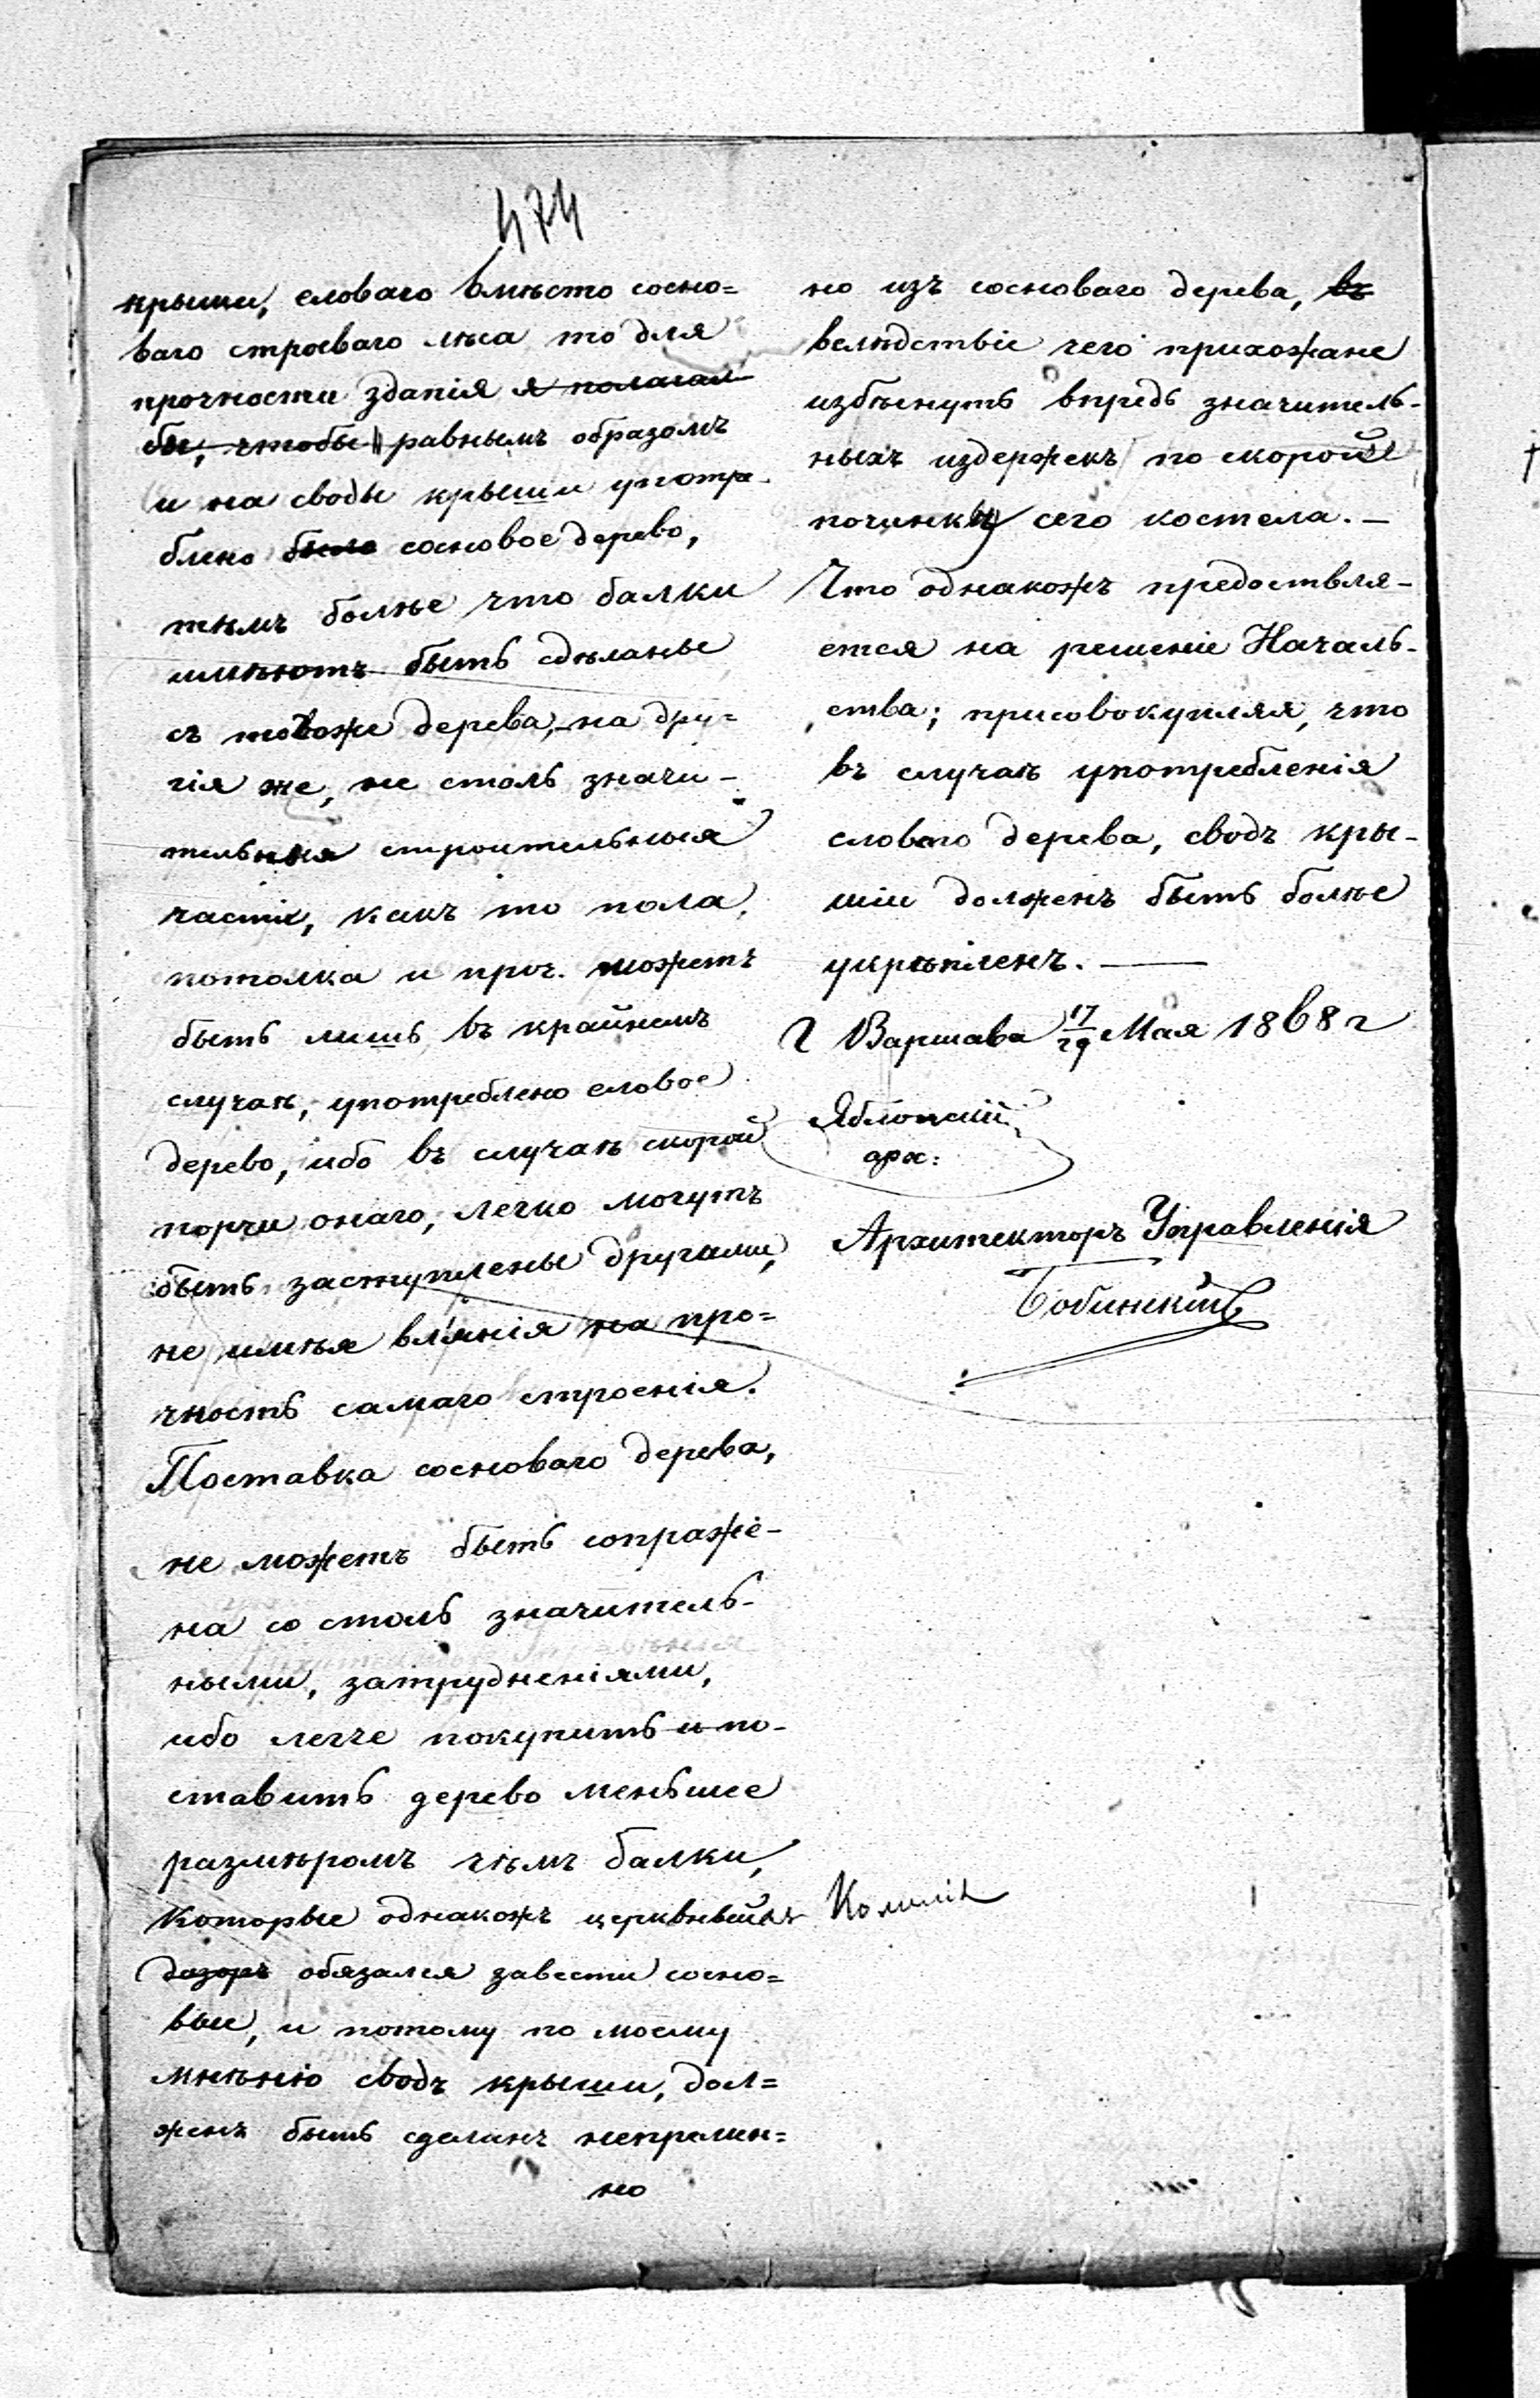 474
крыши, еловаго вмѣсто сосно=
ваго строеваго лѣса то для
прочности зданія я полагалъ
бы, чтобы равнымъ образомъ
и на своды крыши употре-
блено было сосновое дерево,
тѣмъ болѣе что балки
имѣютъ быть сдѣланы
съ тогоже дерева, на дру=
гія же, не столь значи-
тельныя строительныя
части, какъ то пола,
потолка и проч. можетъ
быть лишь въ крайнемъ
случаѣ, употреблено еловое
дерево, ибо въ случаѣ скорой
порчи онаго, легко могутъ
быть заступлены другими,
не имѣя вліянія на про=
чность самаго строенія.
Поставка сосноваго дерева,
не можетъ быть сопряже-
на со столь значитель-
ными, затрудненіями,
ибо легче покупить и по-
ставить дерево меньшее
размѣромъ чѣмъ балки,
которые однакожъ церквный
дозоръ обязался завести сосно=
вые, и потому по моему
мнѣнію сводъ крыши, дол=
женъ быть сделанъ непремен=
но
но изъ сосноваго дерева, въ
велѣдствіе чего прихожане
избѣгнутъ впредь значитель-
ныхъ издержекъ по скорой
починкѣ сего костела. —
Что однакожъ предоствля-
ется на решеніе Началь-
ства; присовокупляя, что
въ случаѣ употребленія
еловаго дерева, сводъ кры-
ши долженъ быть болѣе
укрѣпленъ. —
г Варшава 17/29 Мая 1868 г
Яблонскій
арх:
Архитекторъ Управленія
Бобинскій